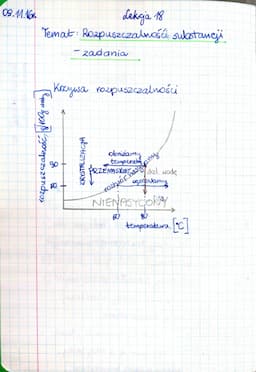 09.11.16r.
Lekcja 18
Temat: Rozpuszczalność substancji
- zadania
Krzywa rozpuszczalności
rozpuszczalność
KRYSTALIZACJA
obniżamy
temperaturę
roztwór nasycony
dol. wodę
ogrzewamy
NIENASYCONY
temperatura [°C]